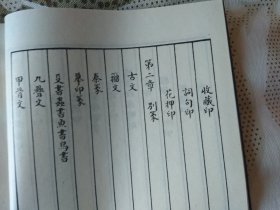 收藏印
詞句印
花押印
第二章 别篆
古文
籀文
秦篆
摹印篆
殳書蟲書魚書鳥書
九疊文
甲骨文